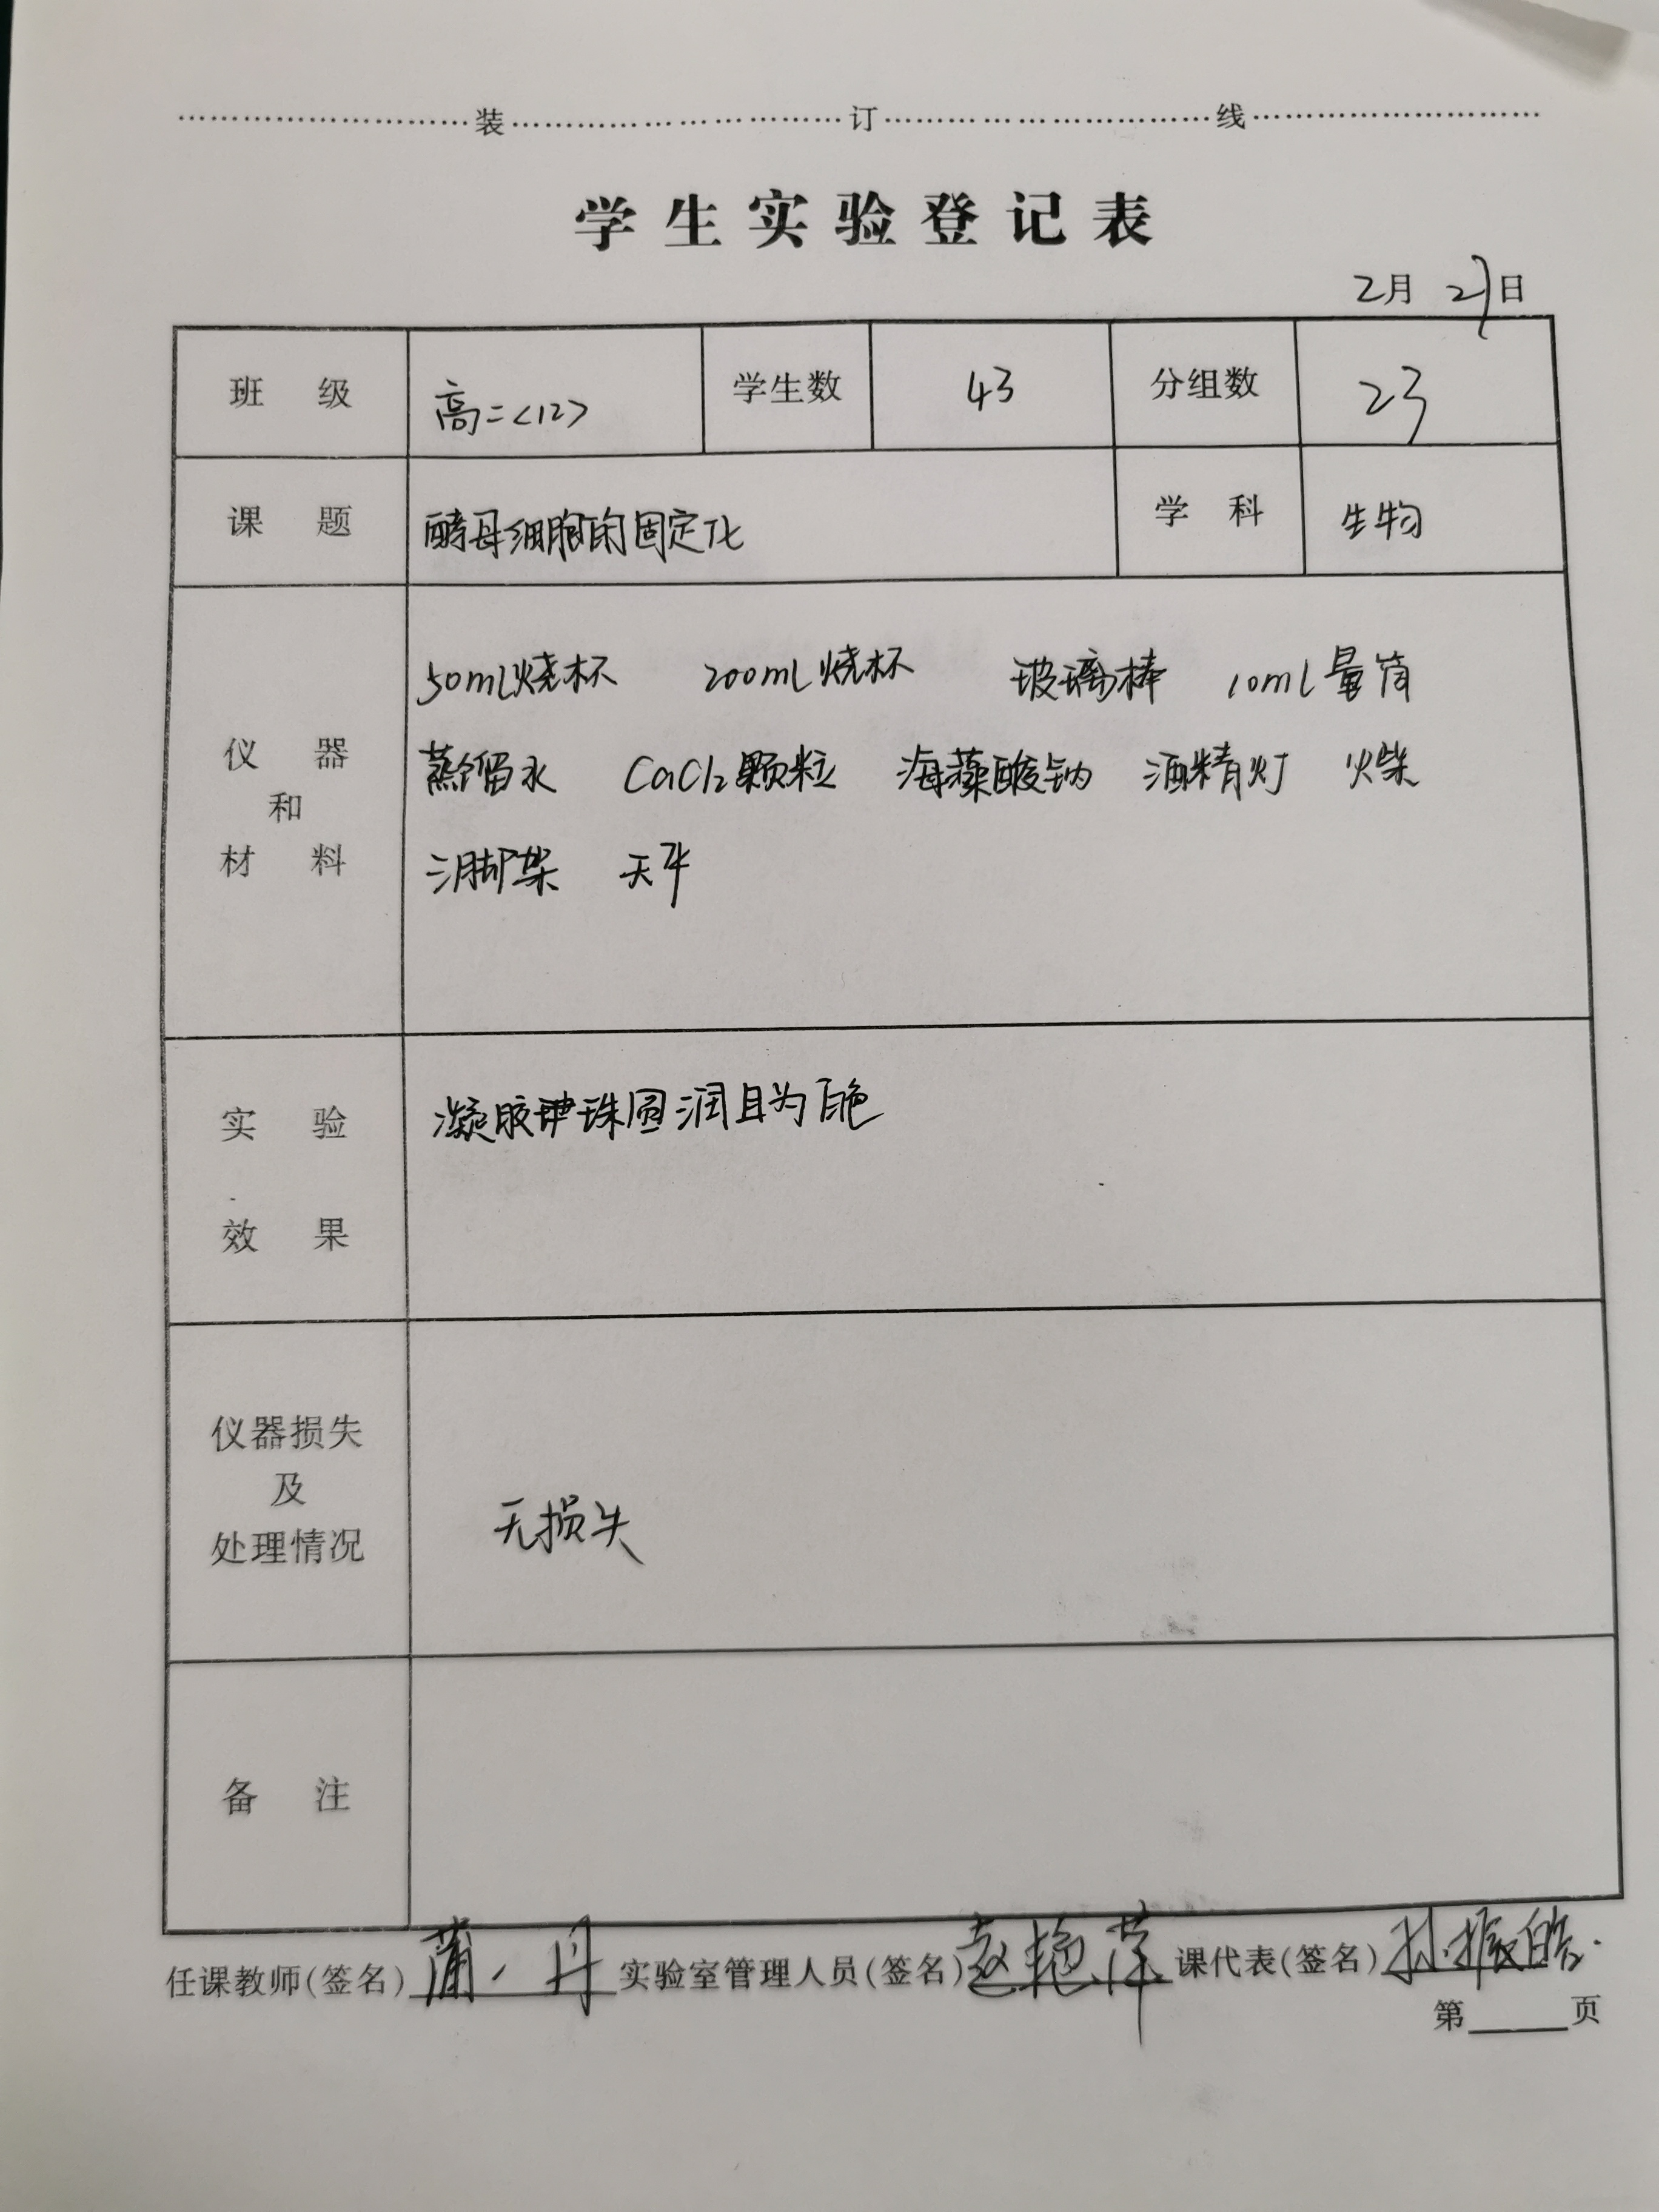 装 订 线
学生实验登记表
2月 27日
班 级 高二<12> 学生数 43 分组数 23
课 题 酵母细胞的固定化 学 科 生物
仪 器 和 材 料
50ml烧杯 200ml烧杯 玻璃棒 10ml量筒
蒸馏水 CaCl2颗粒 海藻酸钠 酒精灯 火柴
三脚架 天平
实 验 效 果
凝胶珠圆润且为白色
仪器损失
及
处理情况
无损失
备 注
任课教师(签名) 蒲丹 实验室管理人员(签名) 赵艳萍 课代表(签名) 孙振皓
第 页